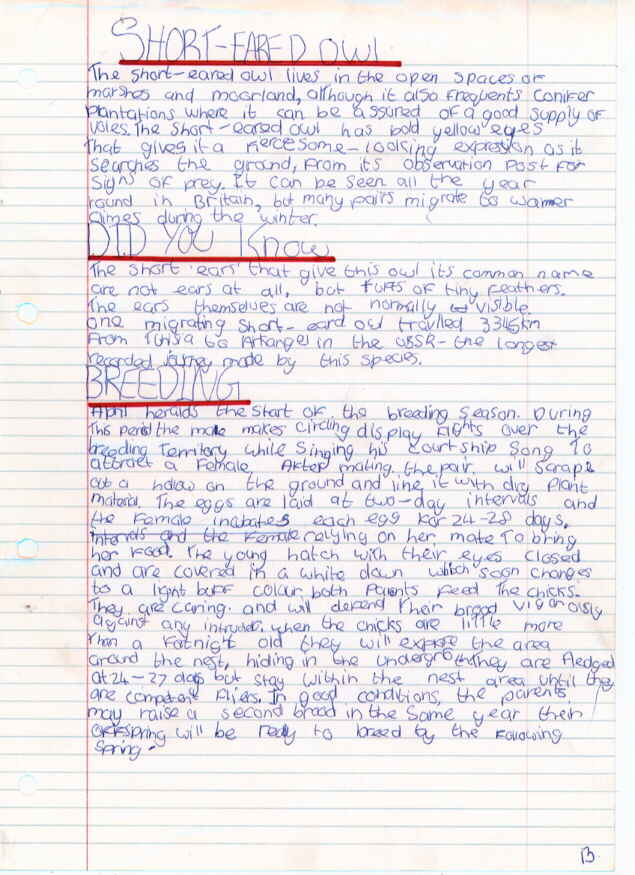 SHORT-EARED OWL
The short-eared owl lives in the open spaces of
marshes and moorland, although it also frequents conifer
plantations where it can be assured of a good supply of
voles. The short-eared owl has bold yellow eyes
That gives it a fiercesome-looking expression as it
searches the ground, from its observation post for
signs of prey. It can be seen all the year
round in Britain, but many pairs migrate to warmer
climes during the winter.
DID YOU KNOW
The short 'ears' that give this owl its common name
are not ears at all, but tufts of tiny feathers.
The ears themselves are not normally visible.
One migrating short-eard owl travlled 3345km
from to in the USSR- the longest
recorded journey made by this species.
BREEDING
April heralds the start of the breeding season. During
This period the male makes circling display flights over the
breeding Territory while singing his courtship song To
attract a female. After mating, the pair will scrape
out a hollow on the ground and line it with dry plant
material. The eggs are laid at two-day intervals and
the female incubates each egg for 24-28 days,
intervals and the female relying on her mate To bring
her food. The young hatch with their eyes closed
and are covered in a white down which soon changes
to a light buff colour. both Parents feed The chicks.
They are caring and will defend Their brood
against any intruder. when the chicks are little more
Than a old they will explore the area
around the nest, hiding in the undergrowth They are fledged
at 24-27 days but stay within the nest area until they
are competent fliers. In good conditions, the parents
may raise a second brood in the same year their
offspring will be ready to breed by the following
Spring-
13